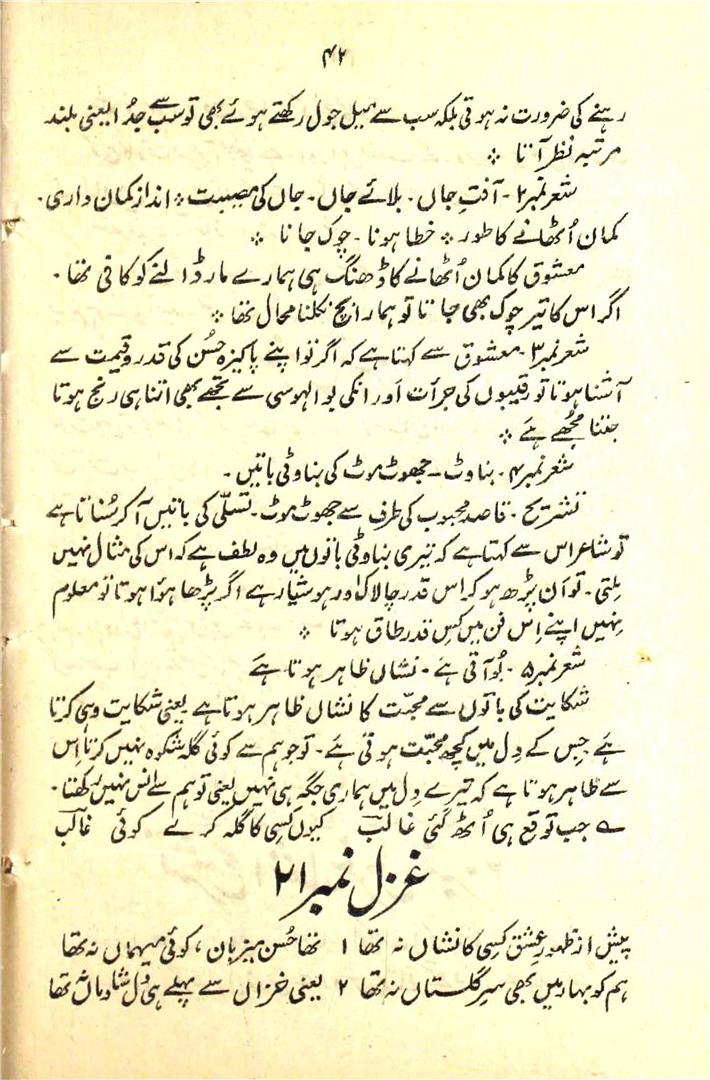 ۴۲
رہنے کی ضرورت نہ ہوتی بلکہ سب سے میل جول رکھتے ہوئے بھی تو سب سے جدُا یعنی بلند
مرتبہ نظر آتا ٭
شعر نمبر۲۔ آفتِ جاں۔ بلائے جاں۔ جاں کی مصیبت ٭ انداز کمان داری۔
کمان اُٹھانے کا طور ٭ خطا ہونا۔ چوک جانا ٭
معشوق کا کمان اُٹھانے کا ڈھنگ ہی ہمارے مار ڈالنے کو کافی تھا۔
اگر اس کا تیر چوک بھی جاتا تو ہمارا بچ نکلنا محال تھا ٭
شعر نمبر۳۔ معشوق سے کہتا ہے کہ اگر تو اپنے پاکیزہ حُسن کی قدر و قیمت سے
آشنا ہوتا تو رقیبوں کی جرأت اَور انکی بوالہوسی سے تجھے بھی اتنا ہی رنج ہوتا
جتنا مجُھے ہَے ٭
شعر نمبر۴۔ بناوٹ۔ جھوٹ موٹ کی بناوٹی باتیں۔
تشریح۔ قاصد محبوب کی طرف سے جھوٹ موٹ۔ تسلّی کی باتیں آ کر سُناتا ہے
تو شاعر اس سے کہتا ہے کہ تیری بناوٹی باتوں میں وہ لطف ہے کہ اس کی مثال نہیں
مِلتی۔ تو اَن پڑھ ہو کر اس قدر چالاک اور ہوشیار ہے اگر پڑھا ہؤا ہوتا تو معلوم
نہیں اپنے اِس فن میں کس قدر طاق ہوتا ٭
شعر نمبر۵۔ بُو آتی ہَے۔ نشاں ظاہر ہوتا ہَے
شکایت کی باتوں سے محبّت کا نشاں ظاہر ہوتا ہے یعنی شکایت وہی کرتا
ہَے جِس کے دِل میں کچھ محبّت ہوتی ہَے۔ تو جو ہم سے کوئی گلہ شکوہ نہیں کرتا اِس
سے ظاہر ہوتا ہے کہ تیرے دِل میں ہماری جگہ ہی نہیں یعنی تو ہم سے اُنس نہیں رکھتا۔
؎ جب توقع ہی اُٹھ گئی غالبؔ کیوں کسی کا گلہ کرے کوئی غالبؔ
غزل نمبر ۲۱
پیش از ظہورِ عِشق کسی کا نشاں نہ تھا ۱ تھا حُسن میزبان، کوئی میہماں نہ تھا
ہم کو بہار میں بھی سرِ گلستاں نہ تھا ۲ یعنی خزاں سے پہلے ہی دِل شادماں نہ تھا